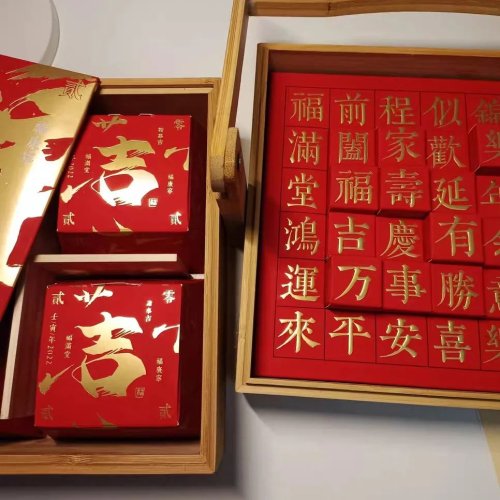 福前程似錦
滿闔家歡樂
堂福壽延年
鴻吉慶有余
運万事勝意
來平安喜
貳
零
吉
福滿堂
貳
貳
零
吉
壬寅年2022
福滿堂
貳